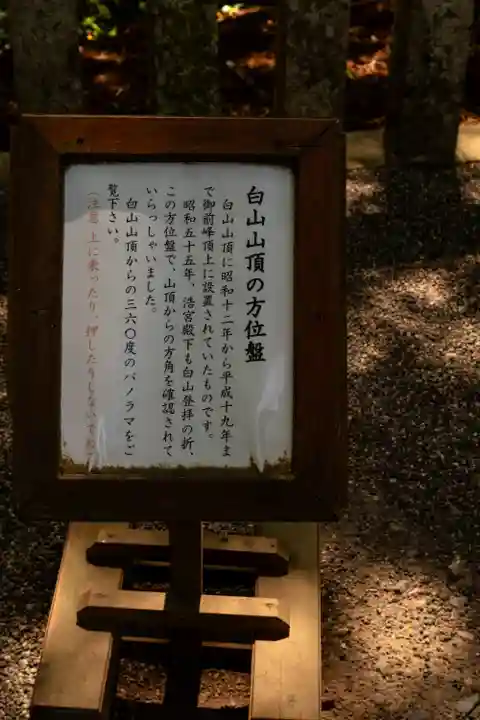 白山山頂の方位盤
白山山頂に昭和十二年から平成十九年ま
で御前峰頂上に設置されていたものです。
昭和五十五年、浩宮殿下も白山登拝の折、
この方位盤で、山頂からの方角を確認されて
いらっしゃいました。
白山山頂からの三六〇度のパノラマをご
覧下さい。
(注意 上に乗ったり、押したりしないで